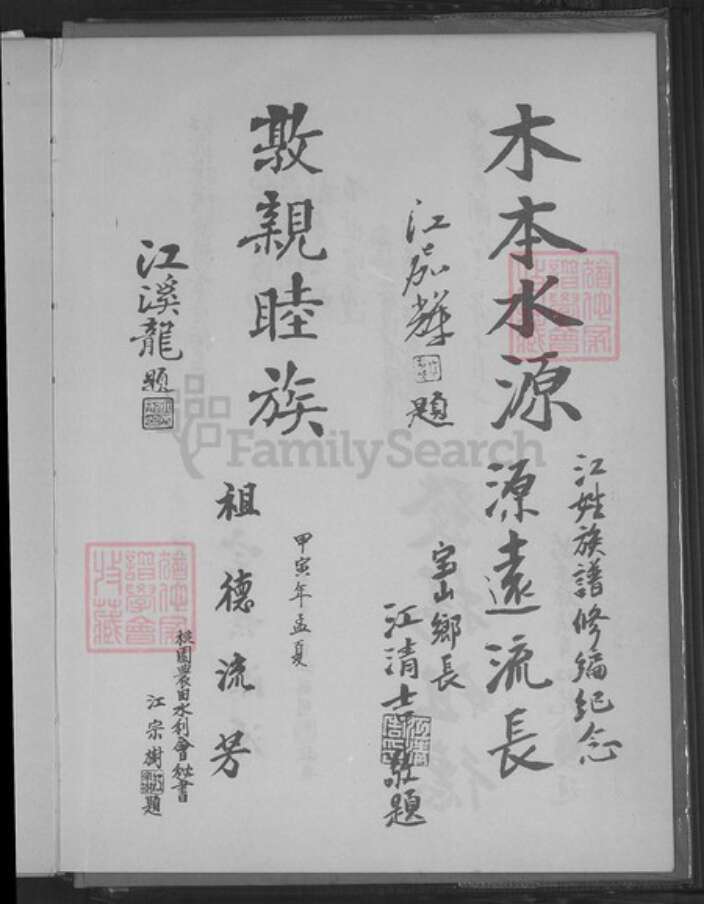 木本水源
江
題
敦親睦族
江溪龍題
江姓族譜修編紀念
源遠流長
宝山鄉長
江清吉敬題
甲寅年孟夏
祖德流芳
桃園農田水利會秘書
江宗樹題
FamilySearch